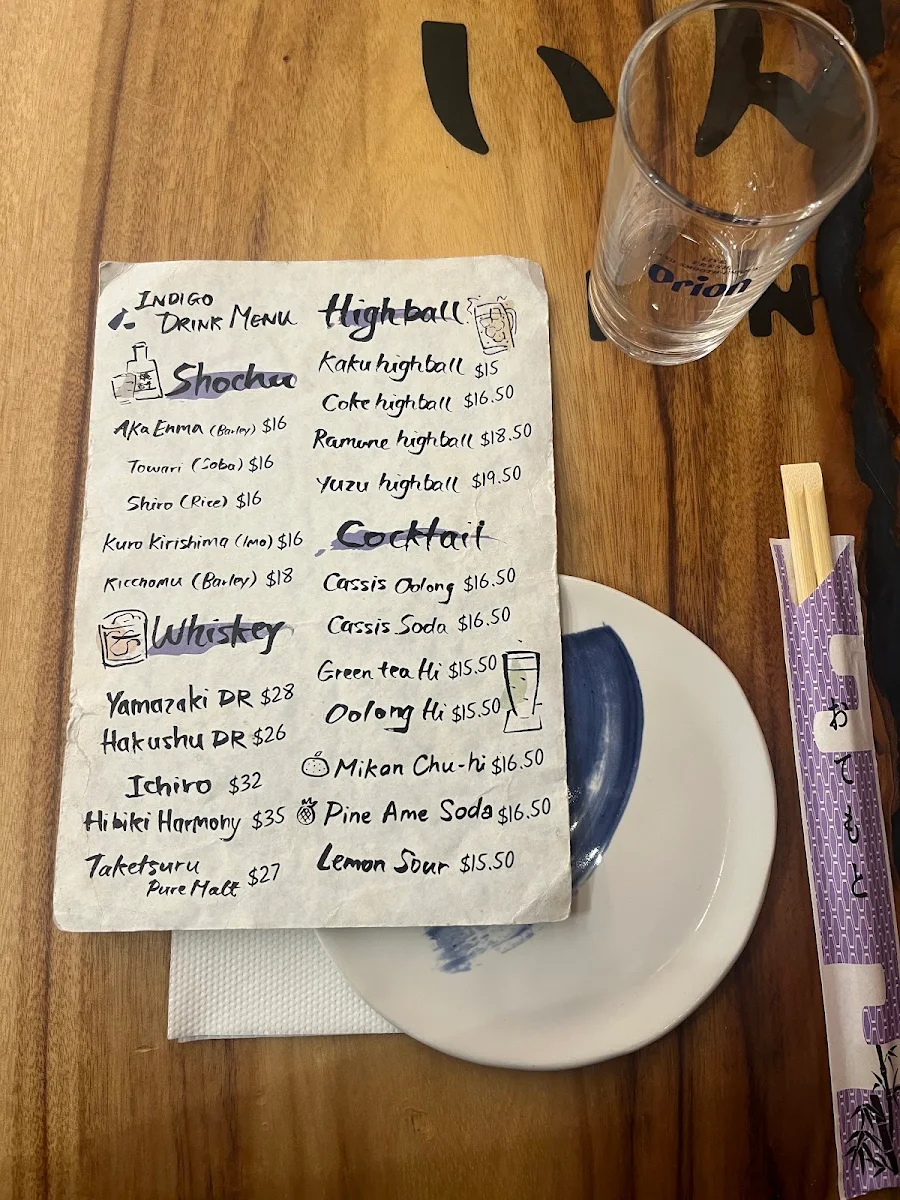 INDIGO
DRINK MENU
Shochu
Aka Enma (Barley) $16
Towari (Soba) $16
Shiro (Rice) $16
Kuro Kirishima (Imo) $16
Kicchomu (Barley) $18
Whiskey
Yamazaki DR $28
Hakushu DR $26
Ichiro $32
Hibiki Harmony $35
Taketsuru
Pure Malt $27
Highball
Kaku highball $15
Coke highball $16.50
Ramune highball $18.50
Yuzu highball $19.50
Cocktail
Cassis Oolong $16.50
Cassis Soda $16.50
Green tea Hi $15.50
Oolong Hi $15.50
Mikan Chu-hi $16.50
Pine Ame Soda $16.50
Lemon Sour $15.50
Orion
おてもと